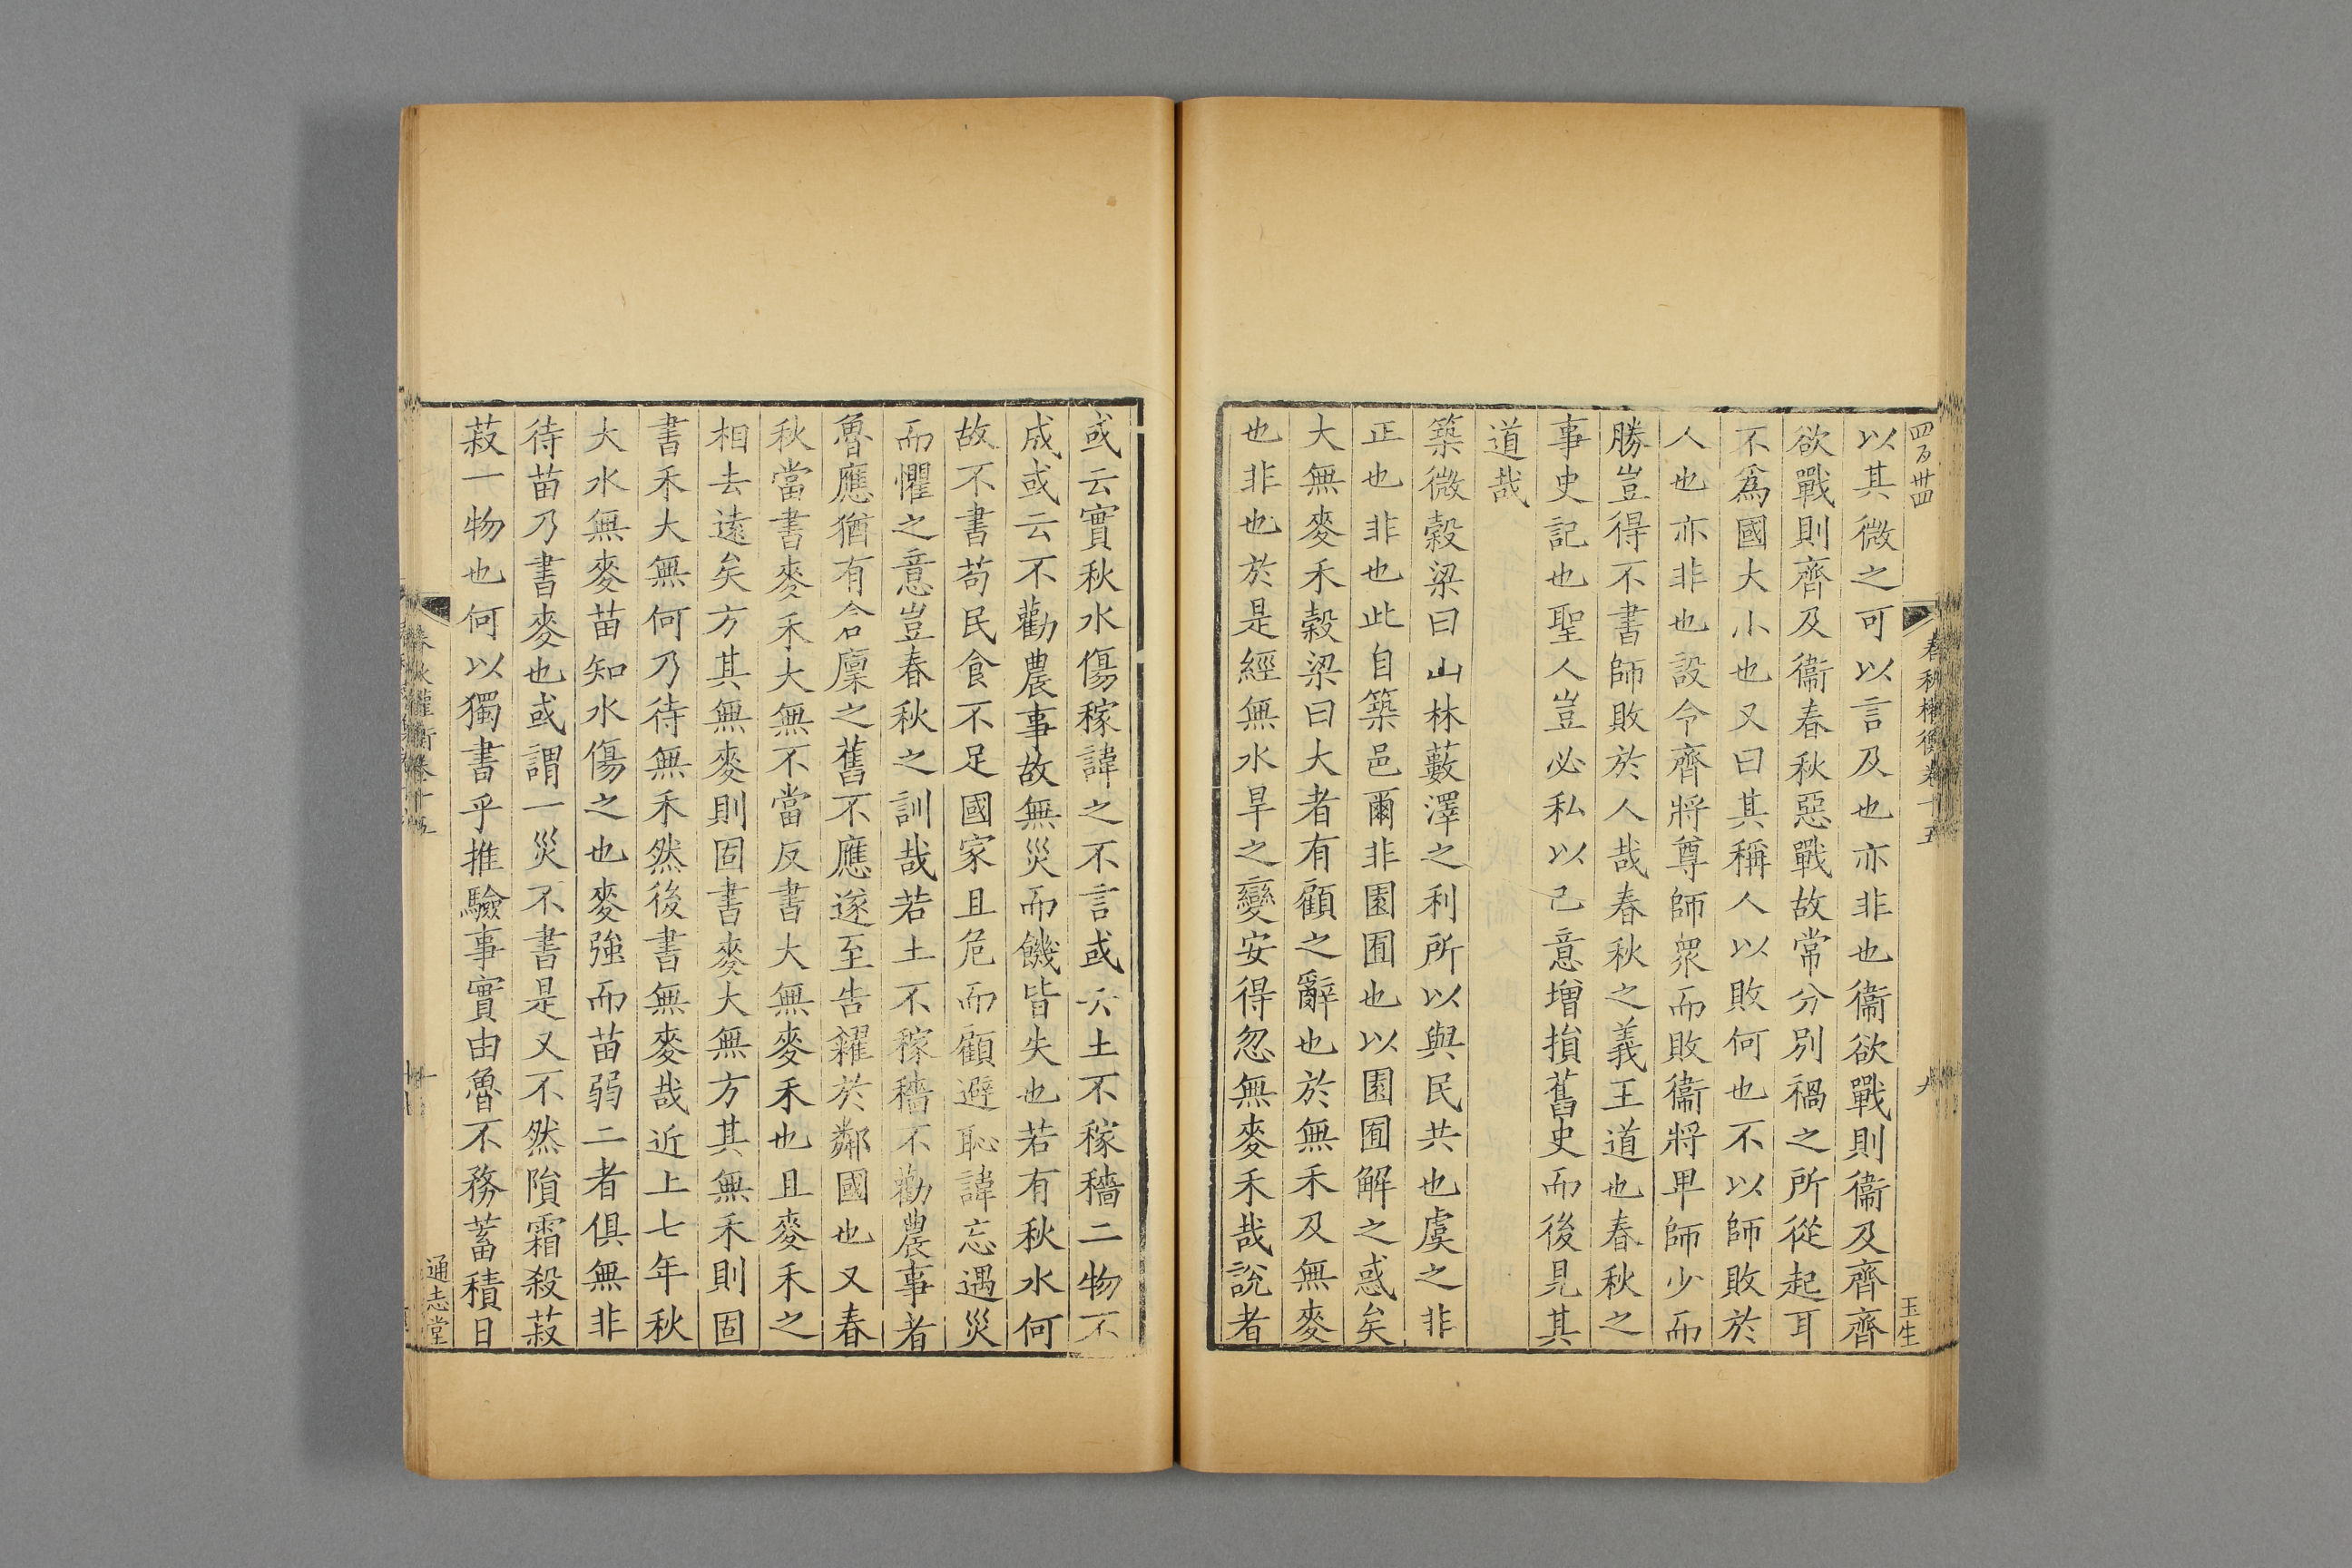 四百卅四
春秋權衡卷十五
八
玉生
以其微之可以言及也亦非也衞欲戰則衞及齊齊
欲戰則齊及衞春秋惡戰故常分別禍之所從起耳
不爲國大小也又曰其稱人以敗何也不以師敗於
人也亦非也設令齊將尊師衆而敗衞將卑師少而
勝豈得不書師敗於人哉春秋之義王道也春秋之
事史記也聖人豈必私以己意增損舊史而後見其
道哉
築微穀梁曰山林藪澤之利所以與民共也虞之非
正也非也此自築邑爾非園囿也以園囿解之惑矣
大無麥禾穀梁曰大者有顧之辭也於無禾及無麥
也非也於是經無水旱之變安得忽無麥禾哉說者
或云實秋水傷稼諱之不言或云土不稼穡二物不
成或云不勸農事故無災而饑皆失也若有秋水何
故不書苟民食不足國家且危而顧避恥諱忘遇災
而懼之意豈春秋之訓哉若土不稼穡不勸農事者
魯應猶有倉廩之舊不應遂至告糴於鄰國也又春
秋當書麥禾大無不當反書大無麥禾也且麥禾之
相去遠矣方其無麥則固書麥大無方其無禾則固
書禾大無何乃待無禾然後書無麥哉近上七年秋
大水無麥苗知水傷之也麥強而苗弱二者俱無非
待苗乃書麥也或謂一災不書是又不然隕霜殺菽
菽一物也何以獨書乎推驗事實由魯不務蓄積日
春秋權衡卷十五
通志堂